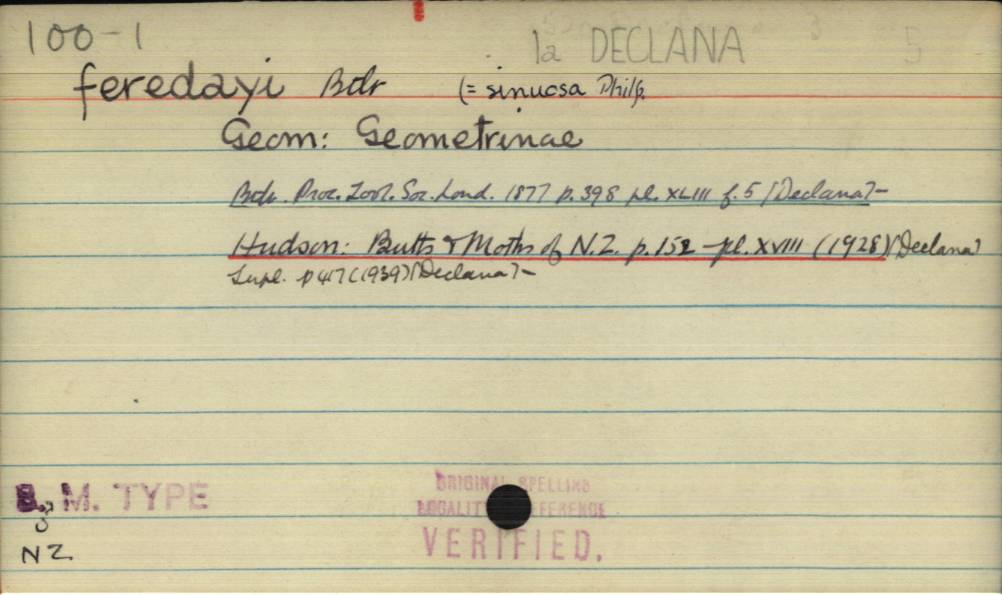 100-1 1a DECLANA 5
feredayi Btlr (= sinuosa Philp.
Geom: Geometrinae
Btlr. Proc. Zool. Soc. Lond. 1877 p. 398 pl. XLIII f. 5 [Declana] -
Hudson: Butts & Moths of N.Z. p. 152 - pl. XVIII (1928) [Declana]
Supl. p 417 (1939) [Declana] -
B. M. TYPE
ORIGINAL SPELLING
LOCALITY REFERENCE
VERIFIED.
♂
NZ